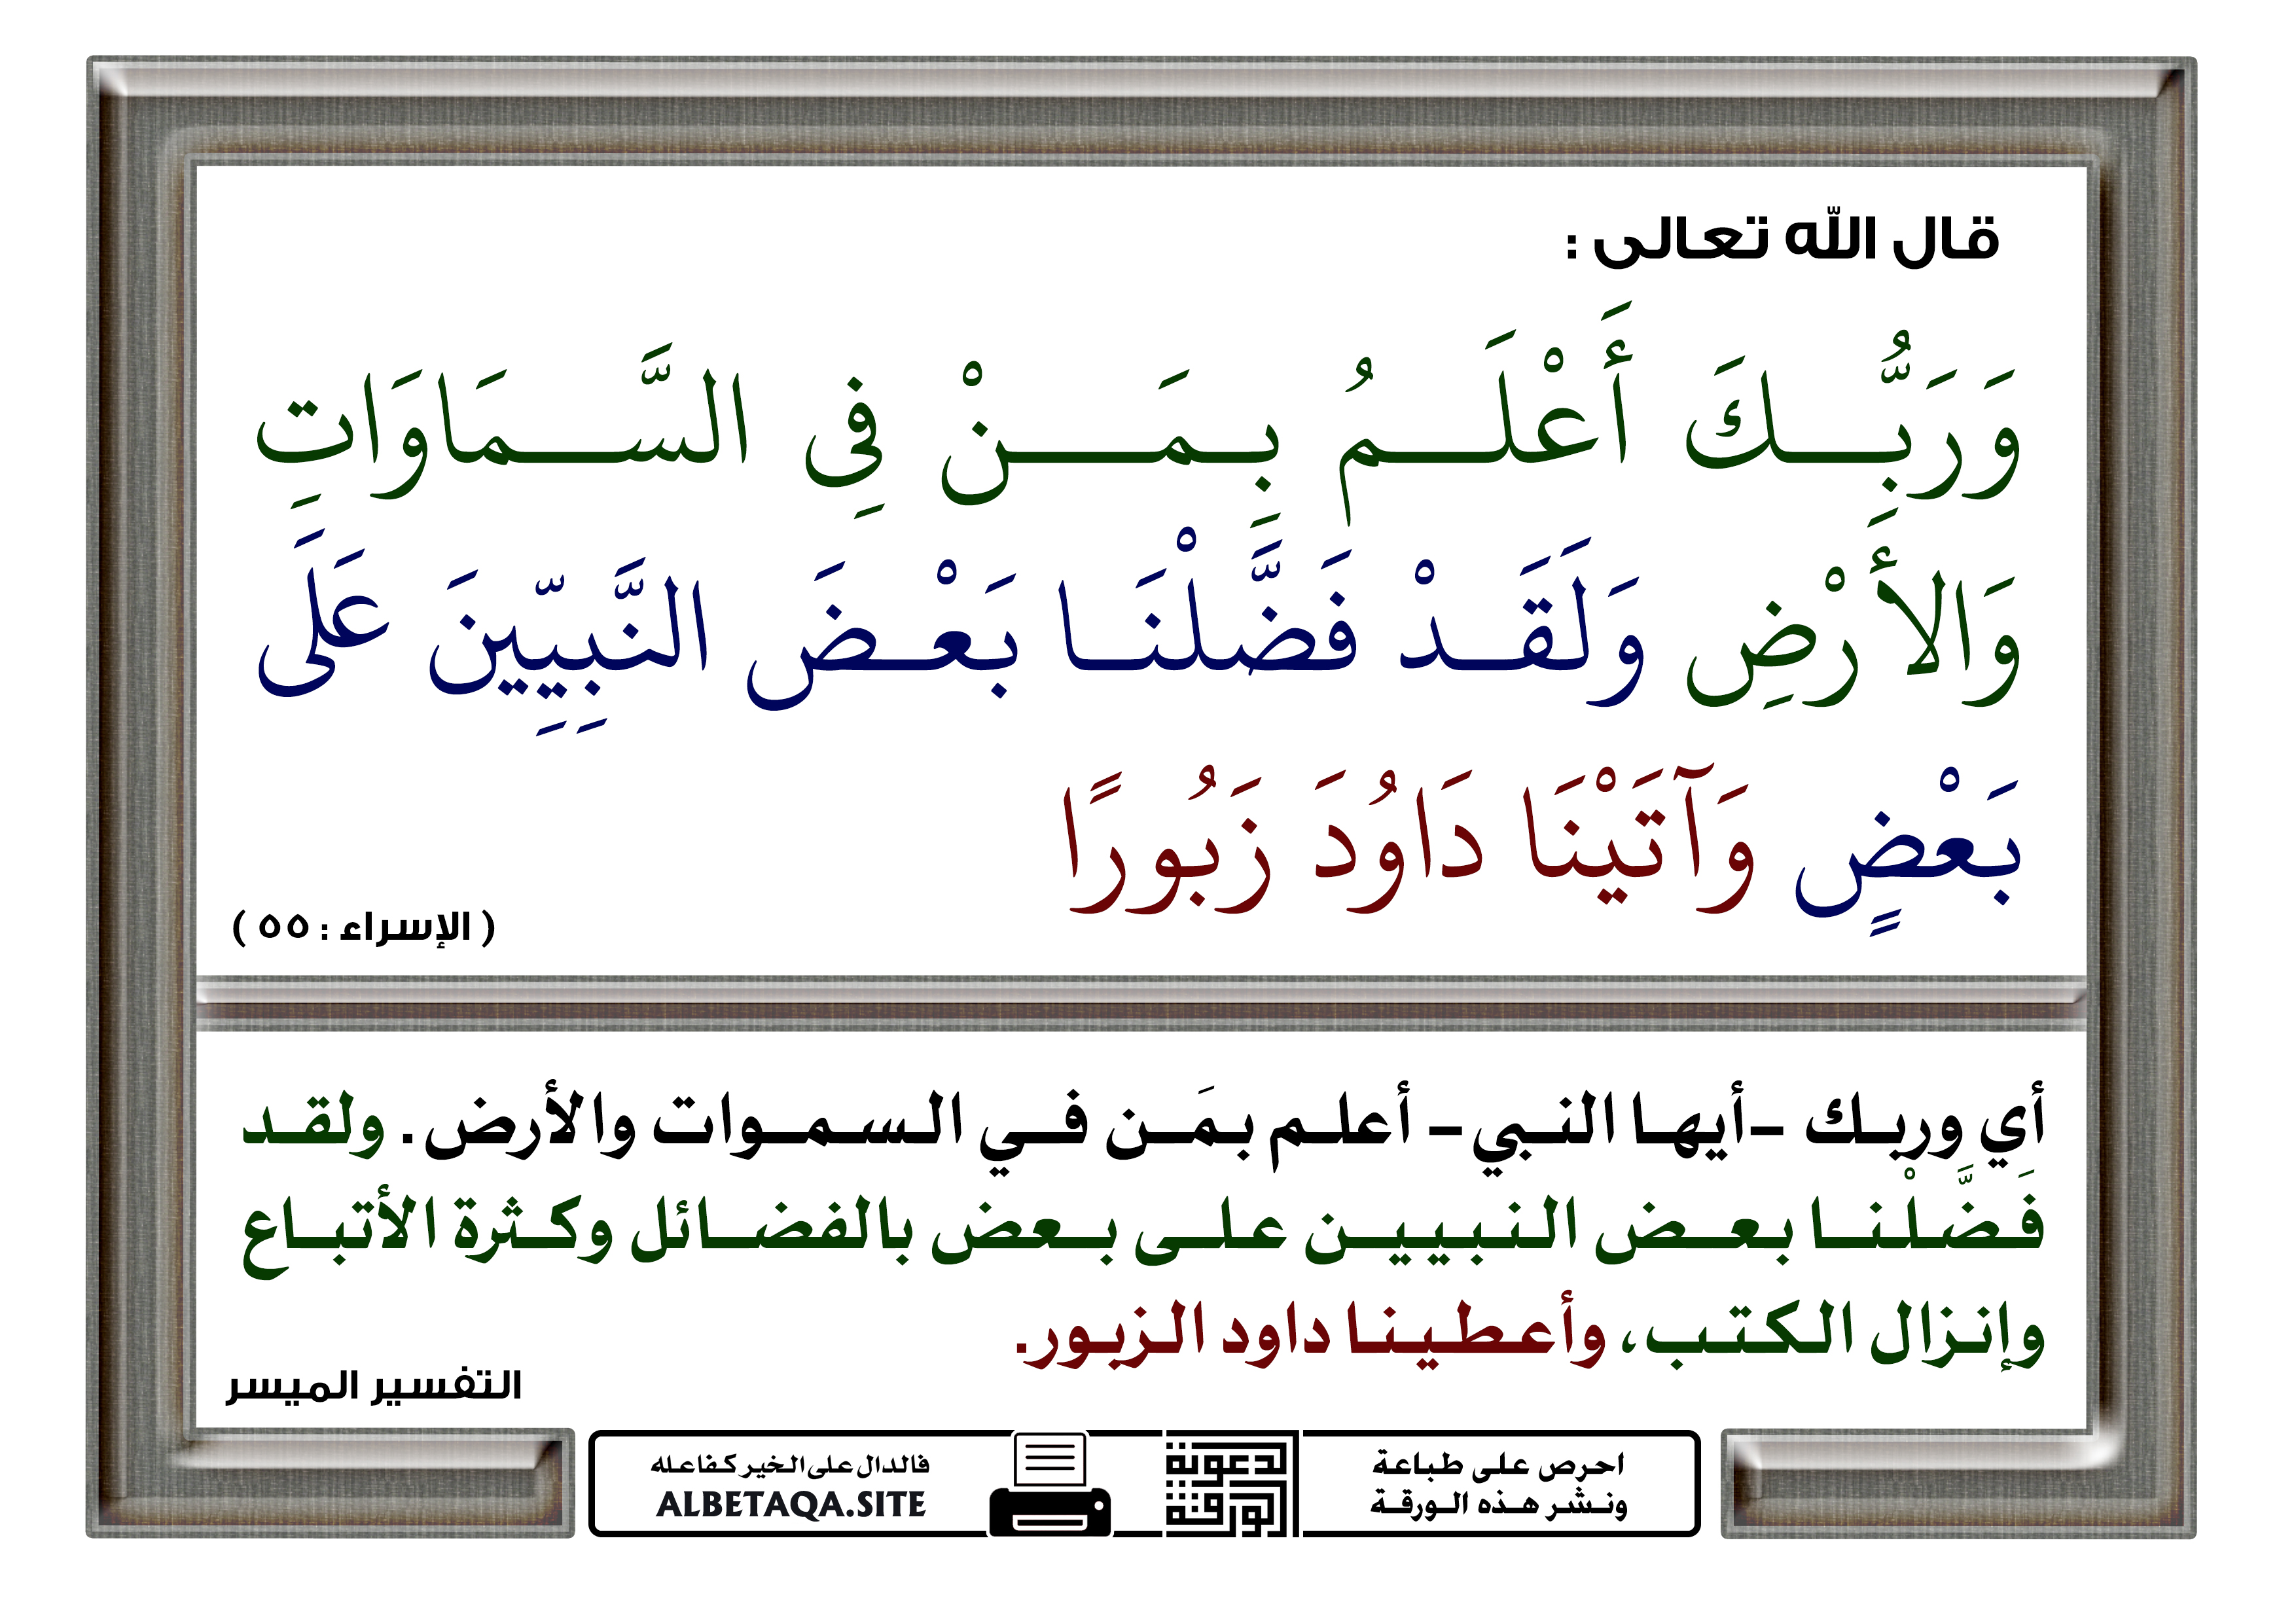 قال الله تعالى :
وَرَبُّكَ أَعْلَمُ بِمَنْ فِي السَّمَاوَاتِ
وَالأَرْضِ وَلَقَدْ فَضَّلْنَا بَعْضَ النَّبِيِّينَ عَلَى
بَعْضٍ وَآتَيْنَا دَاوُدَ زَبُورًا
( الإسراء : ٥٥ )
أي وربك -أيها النبي- أعلم بمَن في السموات والأرض. ولقد
فَضَّلْنا بعض النبيين على بعض بالفضائل وكثرة الأتباع
وإنزال الكتب، وأعطينا داود الزبور.
التفسير الميسر
احرص على طباعة
ونشر هذه الورقة
الورقة
الدعوية
فالدال على الخير كفاعله
ALBETAQA.SITE